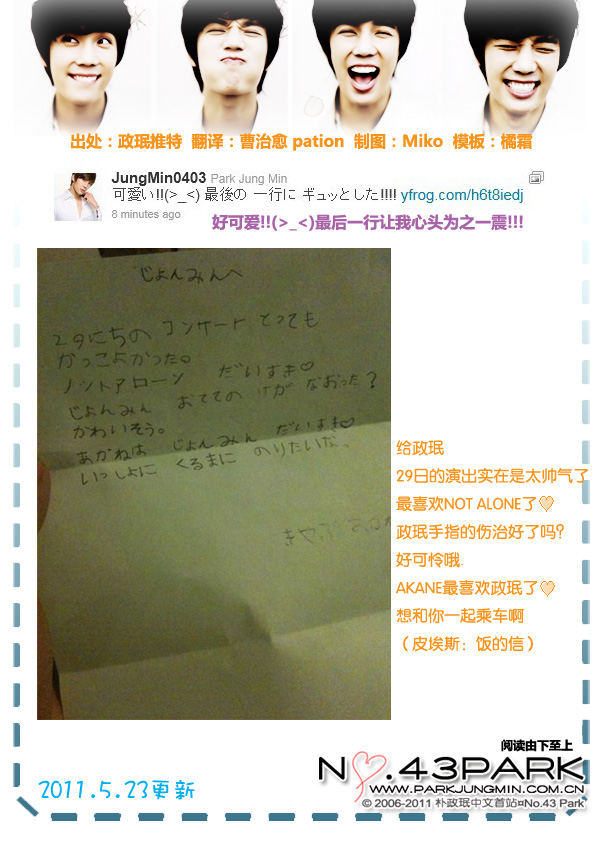 出处：政珉推特 翻译：曹治愈 pation 制图：Miko 模板：橘霜
JungMin0403 Park Jung Min
可愛い!!(>_<) 最後の 一行に ギュッとした!!!! yfrog.com/h6t8iedj
8 minutes ago
好可爱!!(>_<)最后一行让我心头为之一震!!!
じょんみんへ
29にちの コンサート とっても
かっこよかった♡
ノットアローン だいすき♡
じょんみん おててのけがなおった？
かわいそう。
あかねは じょんみん だいすき♡
いっしょに くるまに のりたいな。
给政珉
29日的演出实在是太帅气了
最喜欢NOT ALONE了♡
政珉手指的伤治好了吗？
好可怜哦.
AKANE最喜欢政珉了♡
想和你一起乘车啊
（皮埃斯：饭的信）
阅读由下至上
NO.43PARK
WWW.PARKJUNGMIN.COM.CN
© 2006-2011 朴政珉中文首站¤No.43 Park
2011.5.23更新